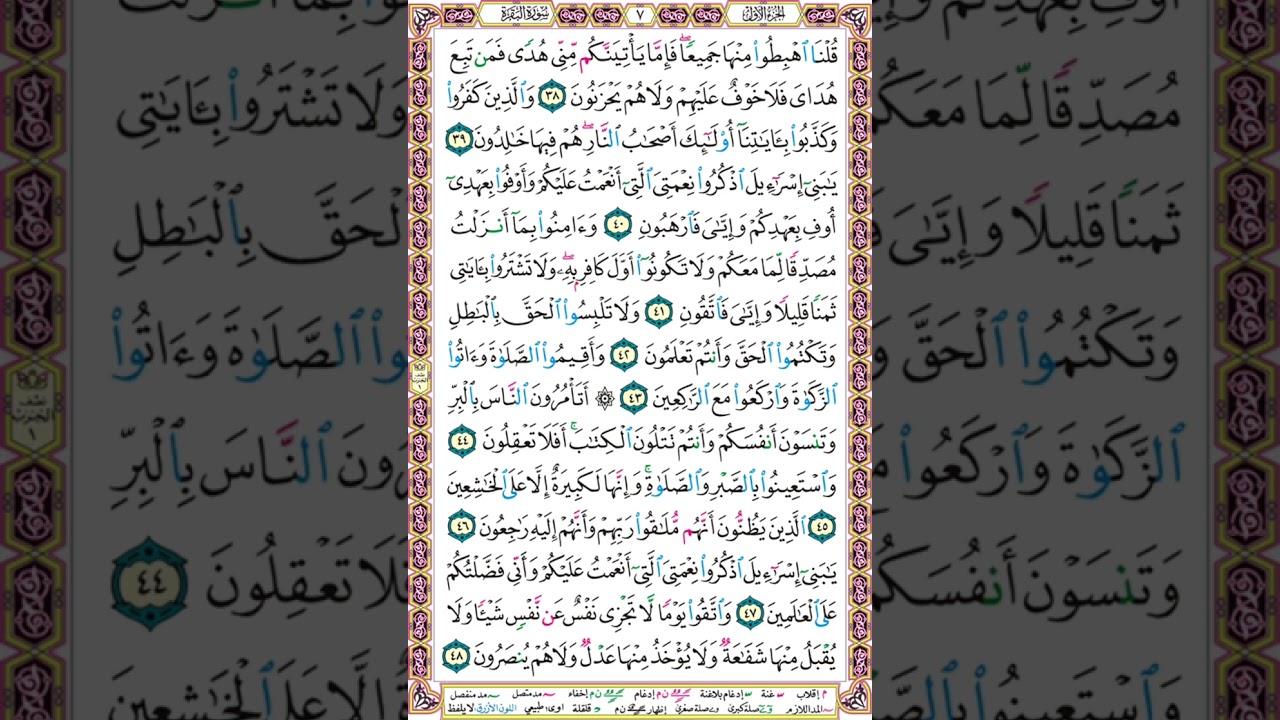 الجزء الأول
٧
سورة البقرة
قُلْنَا ٱهْبِطُوا۟ مِنْهَا جَمِيعًۭا ۖ فَإِمَّا يَأْتِيَنَّكُم مِّنِّى هُدًۭى فَمَن تَبِعَ
هُدَاىَ فَلَا خَوْفٌ عَلَيْهِمْ وَلَا هُمْ يَحْزَنُونَ ٣٨ وَٱلَّذِينَ كَفَرُوا۟
وَكَذَّبُوا۟ بِـَٔايَـٰتِنَآ أُو۟لَـٰٓئِكَ أَصْحَـٰبُ ٱلنَّارِ ۖ هُمْ فِيهَا خَـٰلِدُونَ ٣٩
يَـٰبَنِىٓ إِسْرَٰٓءِيلَ ٱذْكُرُوا۟ نِعْمَتِىَ ٱلَّتِىٓ أَنْعَمْتُ عَلَيْكُمْ وَأَوْفُوا۟ بِعَهْدِىٓ
أُوفِ بِعَهْدِكُمْ وَإِيَّـٰىَ فَٱرْهَبُونِ ٤٠ وَءَامِنُوا۟ بِمَآ أَنزَلْتُ
مُصَدِّقًۭا لِّمَا مَعَكُمْ وَلَا تَكُونُوٓا۟ أَوَّلَ كَافِرٍۭ بِهِۦ ۖ وَلَا تَشْتَرُوا۟ بِـَٔايَـٰتِى
ثَمَنًۭا قَلِيلًۭا وَإِيَّـٰىَ فَٱتَّقُونِ ٤١ وَلَا تَلْبِسُوا۟ ٱلْحَقَّ بِٱلْبَـٰطِلِ
وَتَكْتُمُوا۟ ٱلْحَقَّ وَأَنتُمْ تَعْلَمُونَ ٤٢ وَأَقِيمُوا۟ ٱلصَّلَوٰةَ وَءَاتُوا۟
ٱلزَّكَوٰةَ وَٱرْكَعُوا۟ مَعَ ٱلرَّٰكِعِينَ ٤٣ ۞ أَتَأْمُرُونَ ٱلنَّاسَ بِٱلْبِرِّ
وَتَنسَوْنَ أَنفُسَكُمْ وَأَنتُمْ تَتْلُونَ ٱلْكِتَـٰبَ ۚ أَفَلَا تَعْقِلُونَ ٤٤
وَٱسْتَعِينُوا۟ بِٱلصَّبْرِ وَٱلصَّلَوٰةِ ۚ وَإِنَّهَا لَكَبِيرَةٌ إِلَّا عَلَى ٱلْخَـٰشِعِينَ
٤٥ ٱلَّذِينَ يَظُنُّونَ أَنَّهُم مُّلَـٰقُوا۟ رَبِّهِمْ وَأَنَّهُمْ إِلَيْهِ رَٰجِعُونَ ٤٦
يَـٰبَنِىٓ إِسْرَٰٓءِيلَ ٱذْكُرُوا۟ نِعْمَتِىَ ٱلَّتِىٓ أَنْعَمْتُ عَلَيْكُمْ وَأَنِّى فَضَّلْتُكُمْ
عَلَى ٱلْعَـٰلَمِينَ ٤٧ وَٱتَّقُوا۟ يَوْمًۭا لَّا تَجْزِى نَفْسٌ عَن نَّفْسٍۢ شَيْـًۭٔا وَلَا
يُقْبَلُ مِنْهَا شَفَـٰعَةٌۭ وَلَا يُؤْخَذُ مِنْهَا عَدْلٌۭ وَلَا هُمْ يُنصَرُونَ ٤٨
نصف الحزب ١
م إقلاب غنة إدغام بلاغنة ن م إدغام ن م إخفاء مد متصل مد منفصل
المد اللازم صلة كبرى صلة صغرى إظهار ن م قلقلة اوى: طبيعي اللون الأزرق لا يلفظ